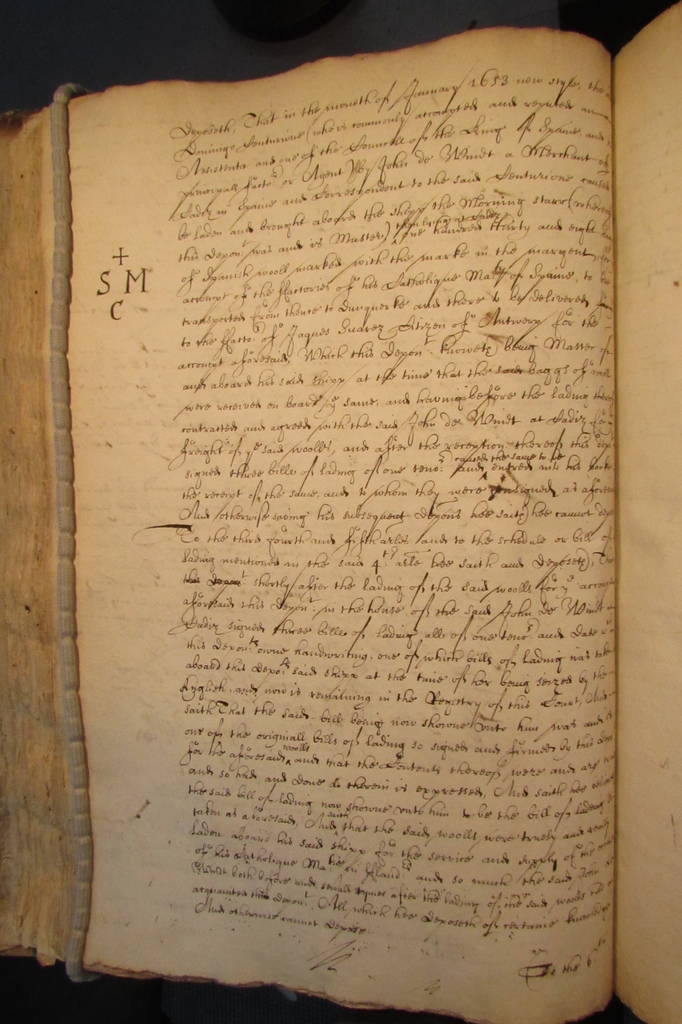 deposeth, That in the moneth of January 1653 new style, the
Domingo Centurione (who is commonly accompted and reputed
Assistente and one of the Councell of the King of Spaine, and
principall factor or Agent by John de Windt a Merchant of
Cadiz in Spaine and Correspondent to the said Centurione caused
be laden and brought aboard the shipp the Morning starr (whereof
this deponent was and is Master) then lying at Cadiz one hundred thirty and eight
of Spanish wooll marked with the marke in the margent
accompt of the factories of his Catholique Maty of Spaine, to be
transported from thence to Dunquerke and there to be delivered
to the facto:r of Jaques Suarez Citizen of Antwerp for the
accompt aforesaid, Which this depont. knoweth being Master of
and aboard his said shipp at the time that the said baggs of wooll
were received on board ye same, and having before the lading thereof
contracted and agreed with the said John de Windt at Cadiz for ye
freight of ye said woolls, and after the reception thereof this
signed three bills of lading of one teno:r and caused the same to be entred into his booke
the receipt of the same, and to whom they were consigned, as aforesaid
And otherwise saving his subsequent depons hee saith hee cannot depose
To the third fourth and fifth arles and to the schedule or bill of
lading mentioned in the said 4th. arle hee saith and deposeth, That
shortly after the lading of the said woolls for ye accompt
aforesaid this depont. in the house of the said John de Windt
Cadiz signed three bills of lading all of one teno:r and date
this deponts owne handwriting, one of which bills of lading was
aboard this deponts said shipp at the time of her being seized by the
English, and now is remaining in the Registry of this Court, And
saith That the said bill being now showne unto him was and is
one of the originall bills of lading so signed and firmed by this
for the aforesaid woolls and that the Contents thereof were and are
and so had and done as therein is expressed, And saith hee
the said bill of lading now showne unto him to be the bill of lading
taken as aforesaid, And saith that the said woolls were truely and really
laden aboard his said shipp for the service and supply of the
of his Catholique Matie in and so much the said John de
Windt both before and severall tymes after the lading of the said woolls
acquainted this depont. All which hee deposeth of certaine knowledge
And otherwise cannot depose.
To the 6th
+
S M
C